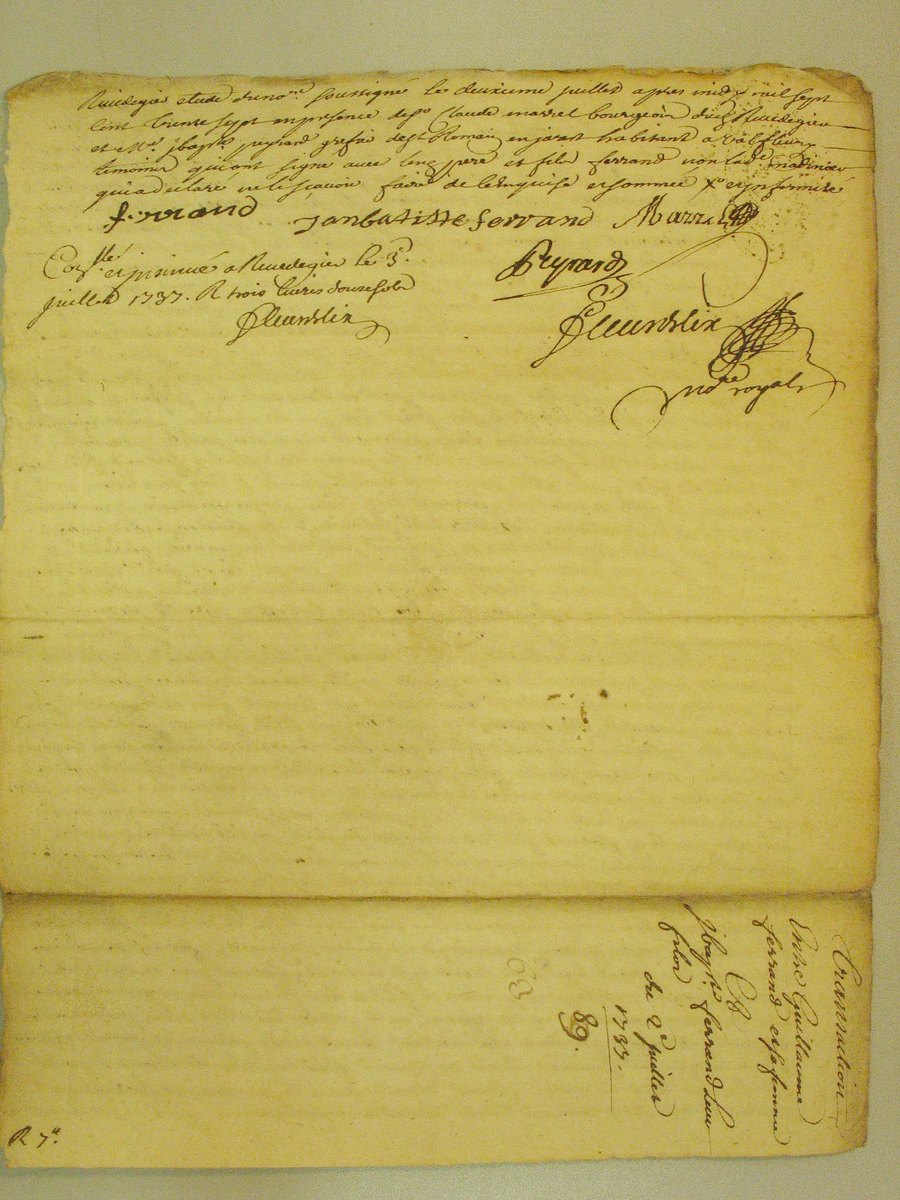 Rivedegier etude dunore. soussigné le deuxieme juillet apres midy mil sept
cent trente sept en presence de sr. Claude marrel bourgeois dud. Rivedegier
et Mr. jbapte. peyrard grefier de st. Romain en jarest habitant a valfleury
temoins qui ont signé avec lesd. pere et fils ferrand non lad.
qui a declaré ne le scavoir faire de ce enquise et sommée
ferrand janbatiste ferrand Marrel
Peyrard
Conllé. et insinué a Rivedegier le 3e.
juillet 1737. R trois livres douze sols
Fleurdelix
Fleurdelix
nore royal
Transaction
Entre Guillaume
ferrand et sa femme
Et
jbapte ferrand leur
fils
du 2e juillet
1737.
89.
R 7#.